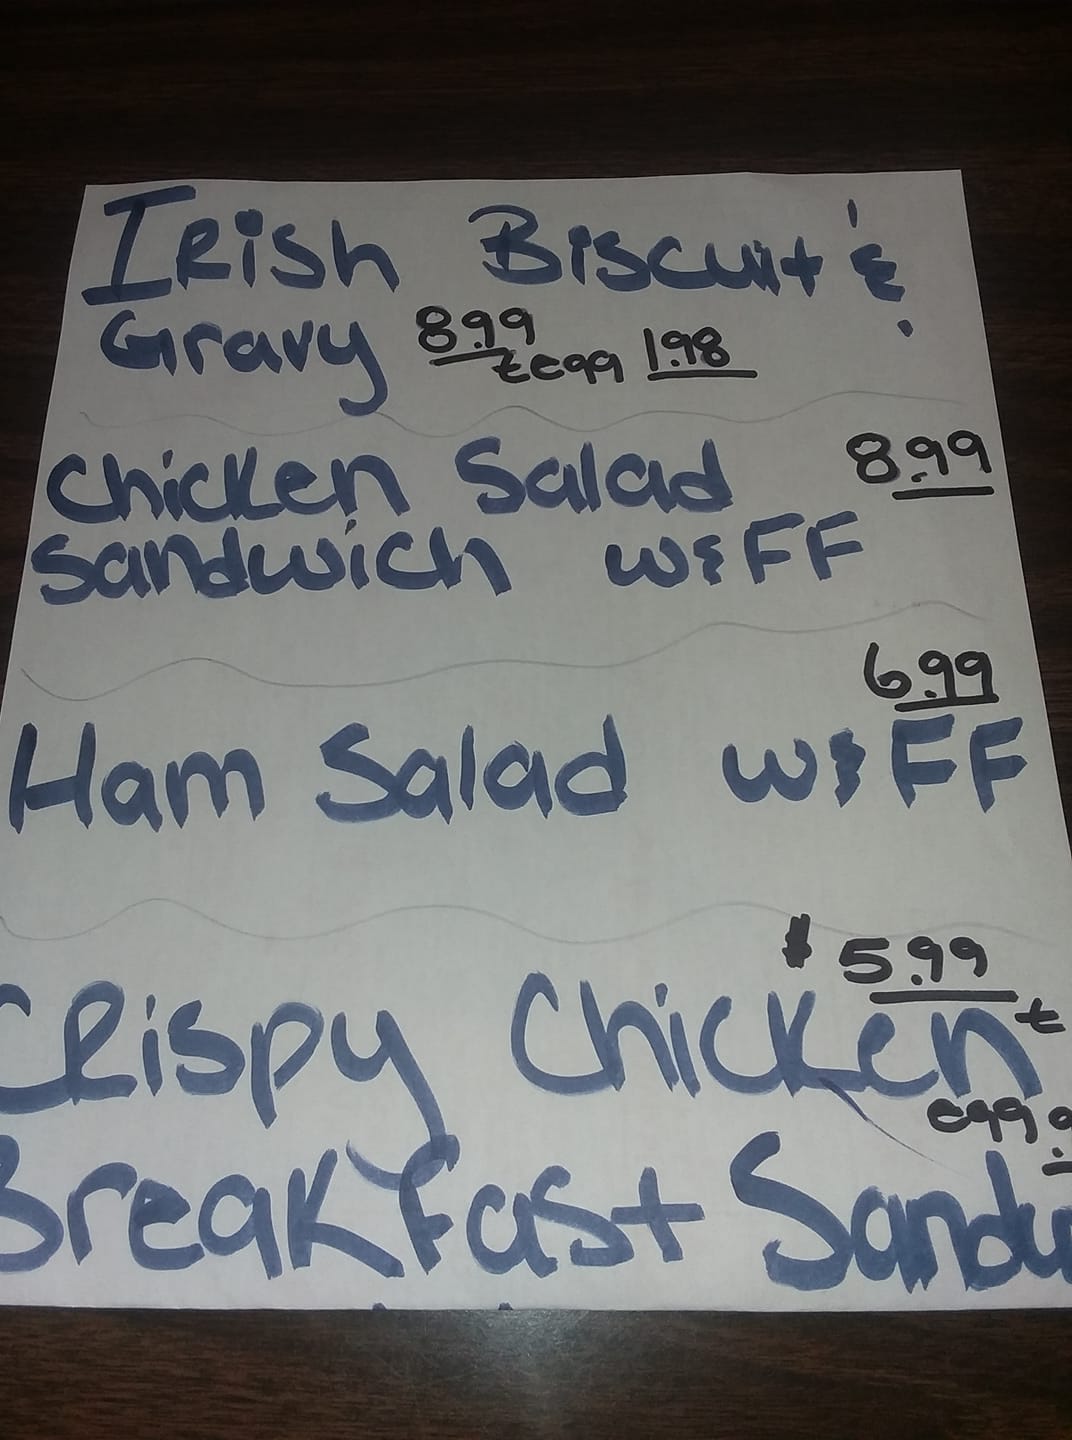 Irish Biscuit &
Gravy 8.99
+ egg 1.98
Chicken Salad 8.99
Sandwich w& FF
6.99
Ham Salad w& FF
$5.99
Crispy Chicken +
egg
Breakfast Sandw